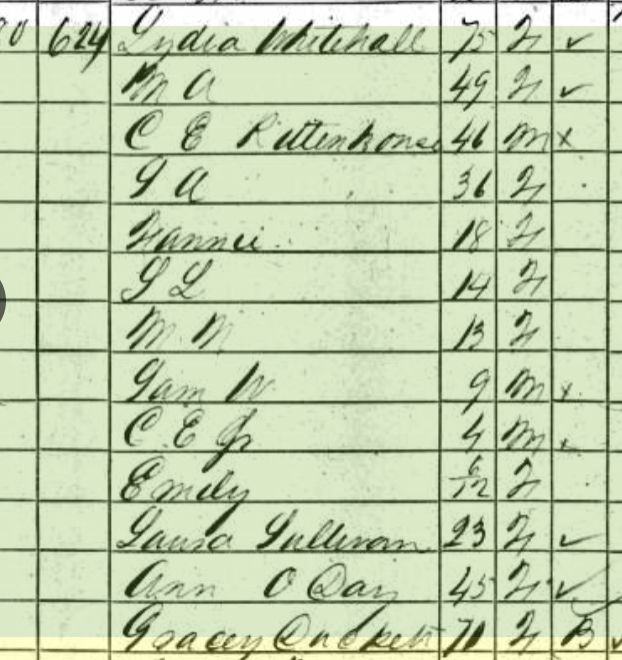 624 Lydia Whitehall 75 F ✓
M A 49 F ✓
C E Rittenhouse 46 M x
S A 36 F
Fannie 18 F
S L 14 F
M M 13 F
Sam W 9 M x
C E Jr 4 M x
Emily 6/12 F
Laura Sullivan 23 F ✓
Ann O Day 45 F ✓
Gracey Duckett 70 F B